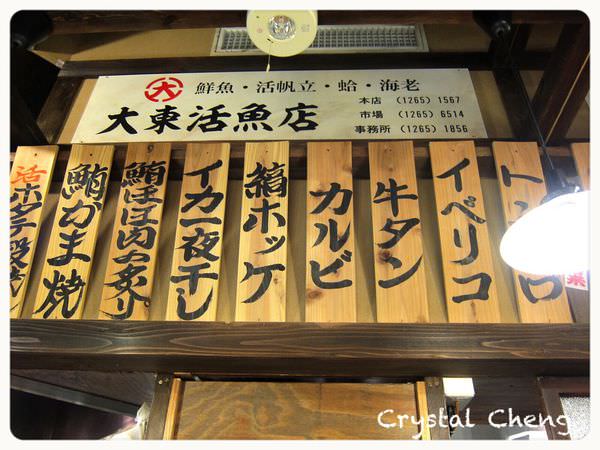 大
鮮魚・活帆立・蛤・海老
大東活魚店
本店 (1265) 1567
市場 (1265) 6514
事務所 (1265) 1856
活ホタテ
鮪かま焼
鮪ほほ肉の炙り
イカ一夜干し
縞ホッケ
カルビ
牛タン
イベリコ
トントロ
Crystal Cheng